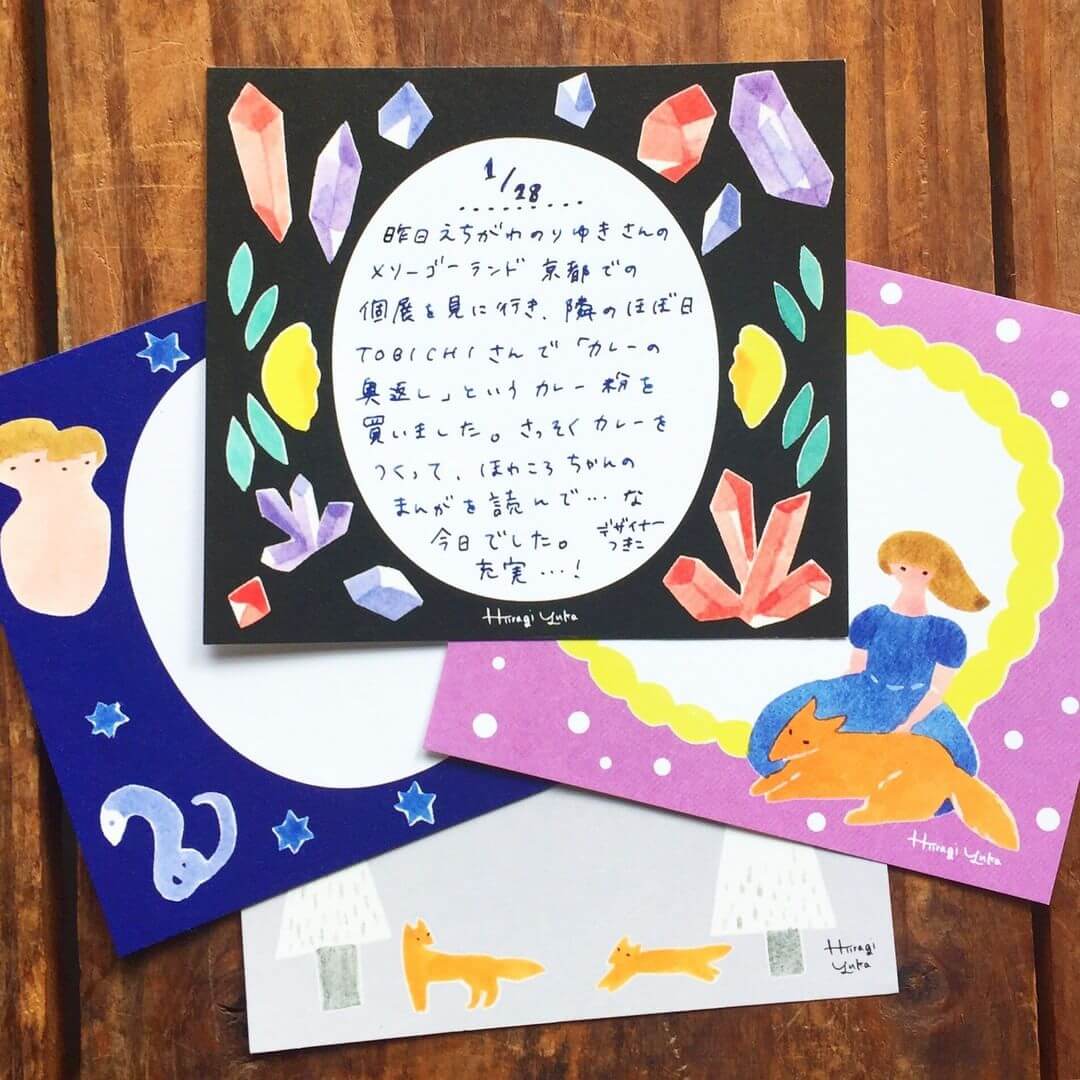 1/28
昨日えちがわのりゆきさんの
メリーゴーランド京都での
個展を見に行き、隣のほぼ日
TOBICHIさんで「カレーの
奥返し」というカレー粉を
買いました。さっそくカレーを
つくって、ほわころちゃんの
まんがを読んで…な
今日でした。
充実…!
デザイナー
つきこ
Hiiragi Yuka
Hiiragi Yuka
Hiiragi
Yuka